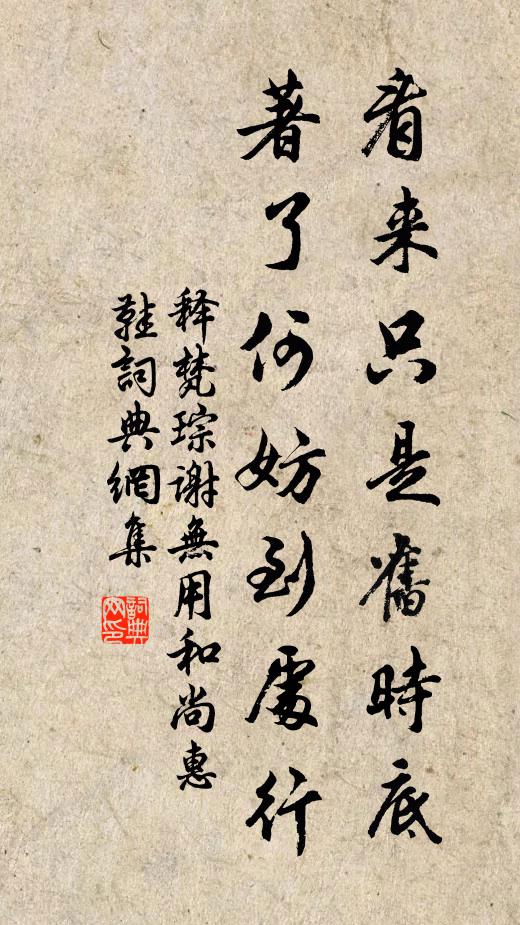 看来只是舊時底
著了何妨到處行
释梵琮谢無用和尚惠
鞋詞典網集
詞典
网印